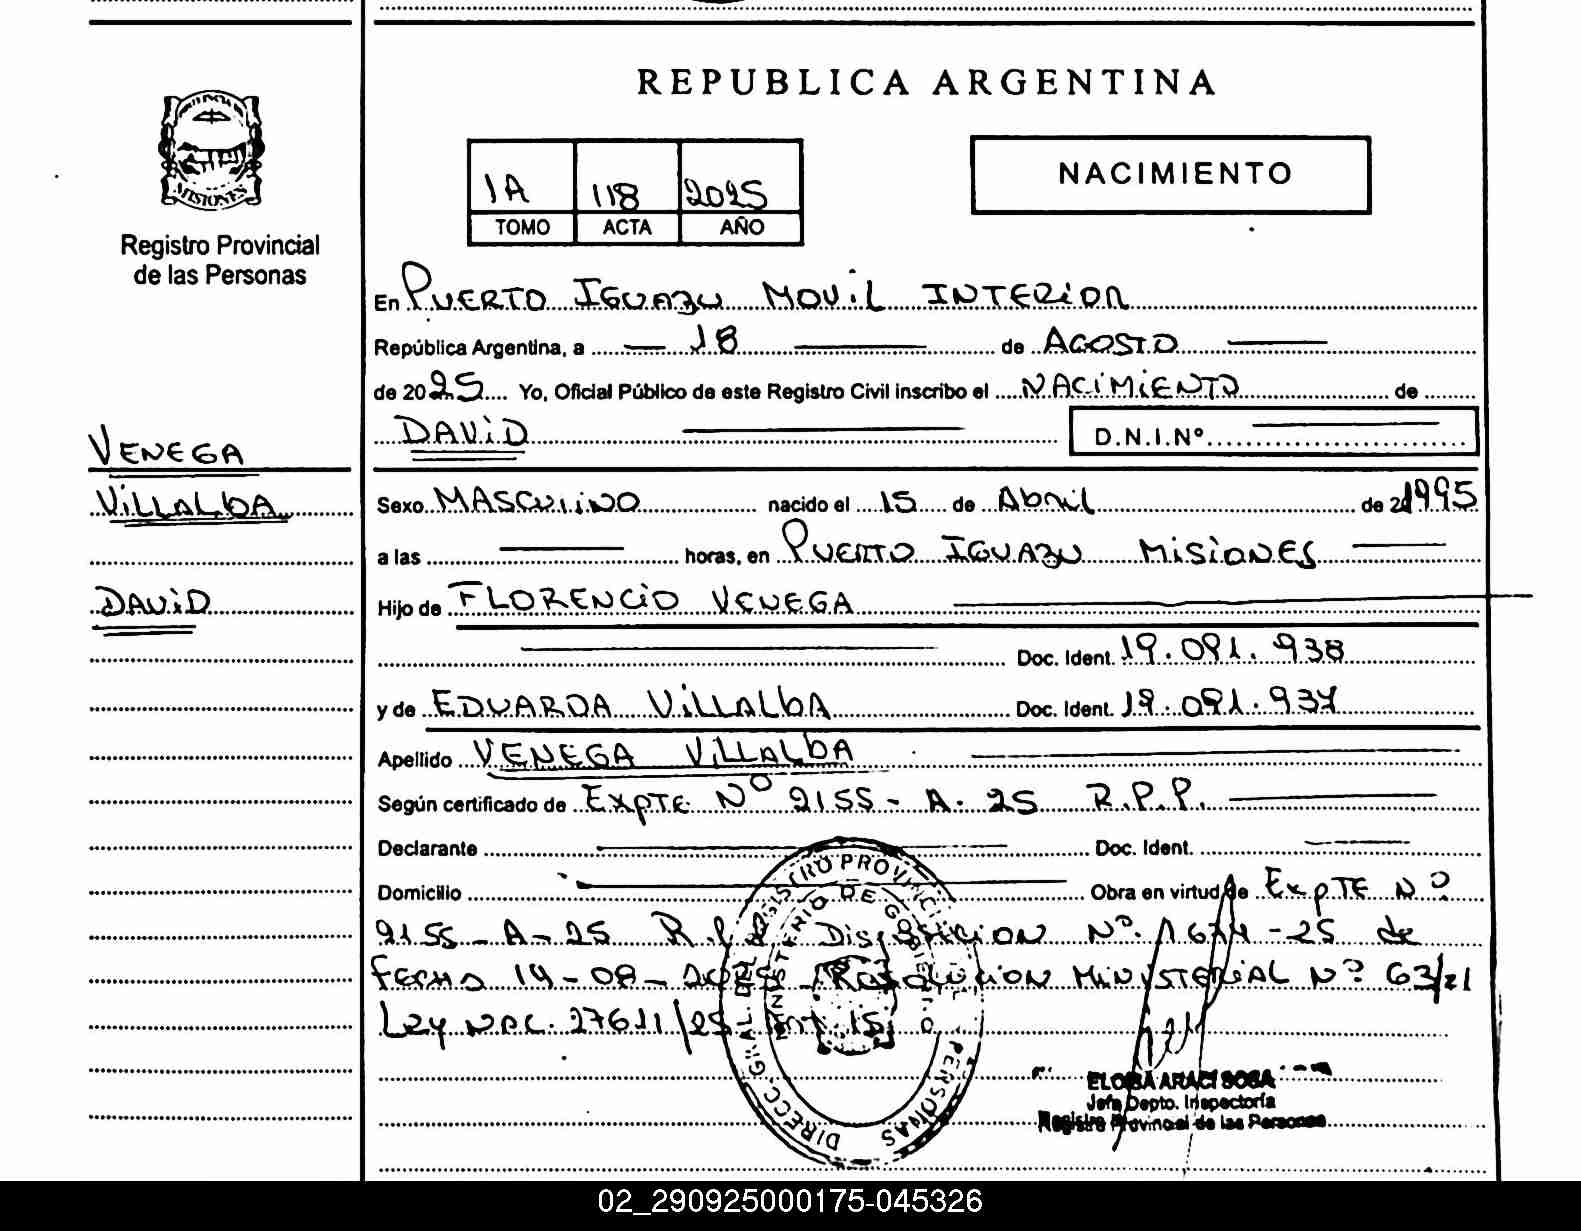 REPUBLICA ARGENTINA
MISIONES
Registro Provincial
de las Personas
1A 118 2025
TOMO ACTA AÑO
NACIMIENTO
En PUERTO IGUAZU MOVIL INTERIOR
República Argentina, a 18 de AGOSTO
de 2025 Yo, Oficial Público de este Registro Civil inscribo el NACIMIENTO de
DAVID D.N.I.Nº
VENEGA
VILLALBA
DAVID
Sexo MASCULINO nacido el 15 de Abril de 1995
a las horas, en PUERTO IGUAZU MISIONES
Hijo de FLORENCIO VENEGA
Doc. Ident. 19.091.938
y de EDUARDA VILLALBA Doc. Ident. 19.091.937
Apellido VENEGA VILLALBA
Según certificado de EXPTE Nº 2155-A-25 R.P.P.
Declarante Doc. Ident.
Domicilio Obra en virtud de EXPTE Nº
2155-A-25 DISPOSICION Nº -25 de
FECHA 14-08- RESOLUCION MINISTERIAL Nº 63/21
LEY NAC. 27611/ Art. 15
DIRECC. GRAL. DEL REGISTRO PROVINCIAL PERSONAS
MINISTERIO DE GOBIERNO
ELOISA ARACI SOSA
Jefa Depto. Inspectoría
Registro Provincial de las Personas
02_290925000175-045326